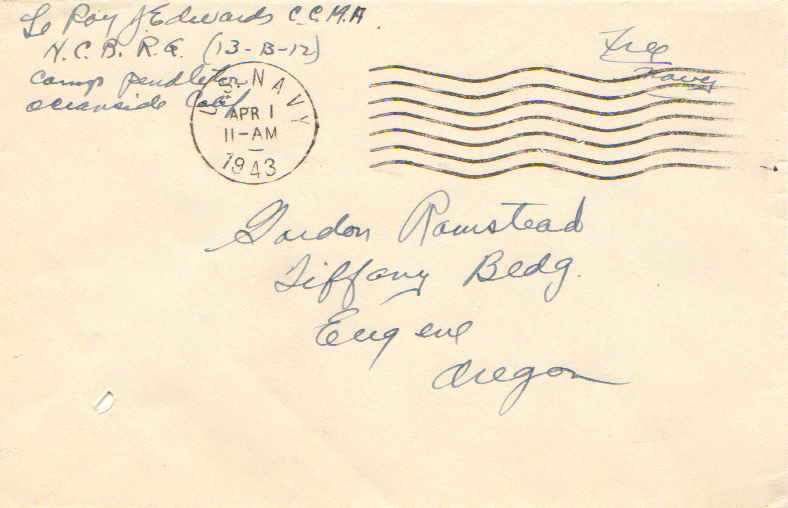 Le Roy J Edwards C.C.M.A.
N.C.B. R.G. (13-B-12)
Camp Pendleton
Oceanside Calif
Free
Navy
U.S. NAVY
APR 1
11-AM
1943
Gordon Ramstead
Tiffany Bldg.
Eugene
Oregon